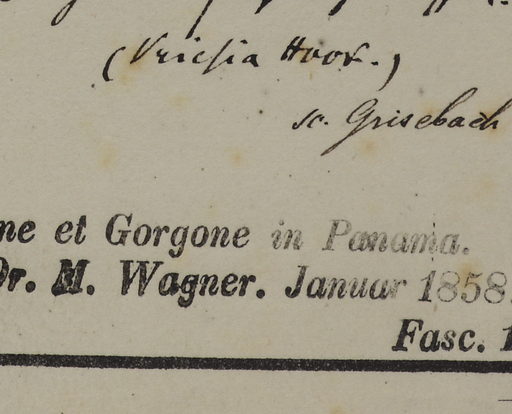 (Vriesia Hook.)
sc. Grisebach
ne et Gorgone in Panama.
Dr. M. Wagner. Januar 1858.
Fasc. 1